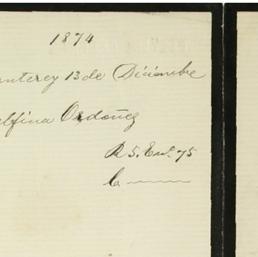 1874
nterey 13 de Diciembre
elfina Ordoñez
R 5. En.. 75
C